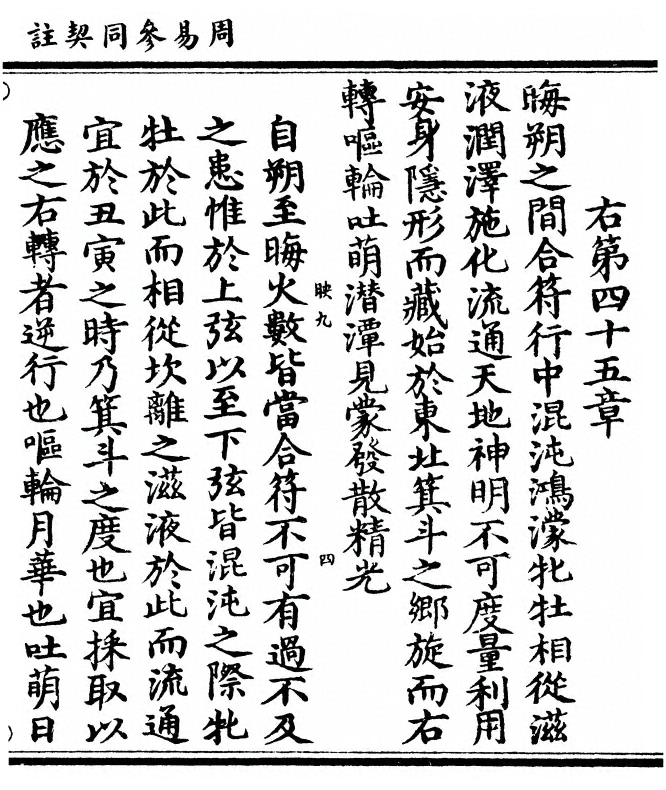 周易參同契註
右第四十五章
晦朔之間合符行中混沌鴻濛牝牡相從滋
液潤澤施化流通天地神明不可度量利用
安身隱形而藏始於東北箕斗之鄉旋而右
轉嘔輪吐萌潜潭見蒙發散精光
映九
四
自朔至晦火數皆當合符不可有過不及
之患惟於上弦以至下弦皆混沌之際牝
牡於此而相從坎離之滋液於此而流通
宜於丑寅之時乃箕斗之度也宜採取以
應之右轉者逆行也嘔輪月華也吐萌日